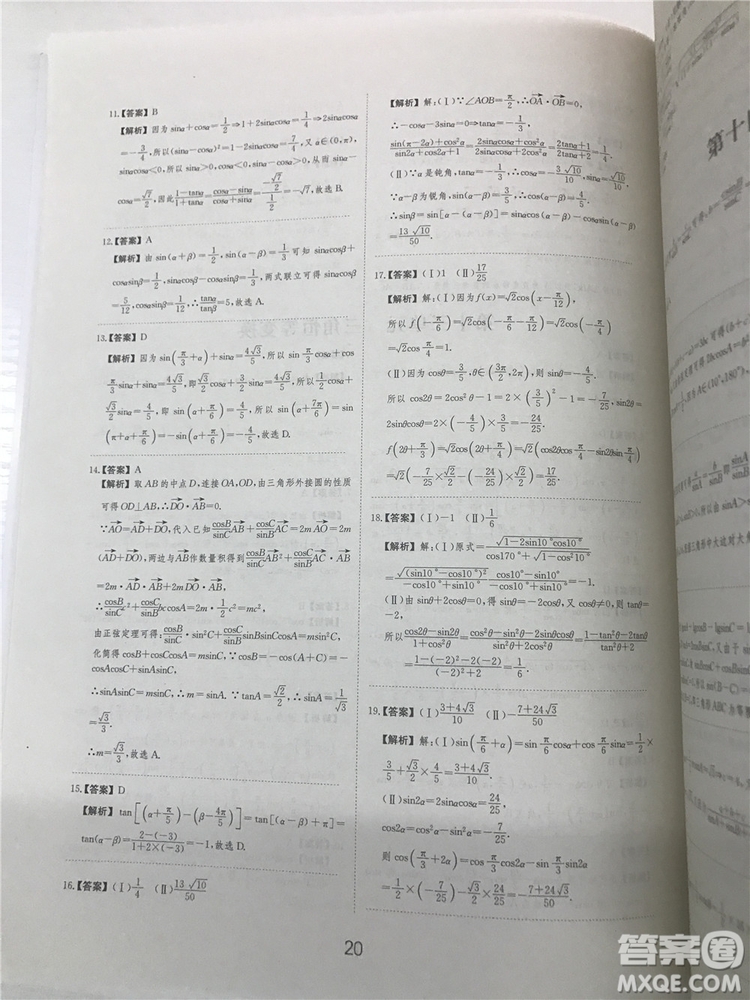 11.【答案】B
【解析】因为 sinα+cosα=1/2⇒1+2sinαcosα=1/4⇒2sinαcosα
=-3/4,所以(sinα-cosα)²=1-2sinαcosα=7/4,又α∈(0,π),
sinαcosα<0,所以 sinα>0,cosα<0,sinα-cosα>0,从而 sinα-
cosα=√7/2,因此(1-tanα)/(1+tanα)=(cosα-sinα)/(cosα+sinα)=(-√7/2)/(1/2)=-√7,故选 B.
12.【答案】A
【解析】由 sin(α+β)=1/2,sin(α-β)=1/3可知 sinαcosβ+
cosαsinβ=1/2,sinαcosβ-cosαsinβ=1/3,两式联立可得 sinαcosβ=
5/12,cosαsinβ=1/12,∴tanα/tanβ=5,故选 A.
13.【答案】D
【解析】因为 sin(π/3+α)+sinα=4√3/5,所以 sin π/3 cosα+cos
π/3 sinα+sinα=4√3/5,即√3/2 cosα+3/2 sinα=4√3/5,所以1/2 cosα+
√3/2 sinα=4/5,即 sin(α+π/6)=4/5,所以 sin(α+7π/6)=sin
(π+α+π/6)=-sin(α+π/6)=-4/5.故选 D.
14.【答案】A
【解析】取 AB 的中点 D,连接 OA,OD,由三角形外接圆的性质
可得 OD⊥AB,∴DO·AB=0.
∵AO=AD+DO,代入已知cosB/sinC AB+cosC/sinB AC=2m AO=2m
(AD+DO),两边与AB作数量积得到cosB/sinC AB²+cosC/sinB AB·AC
=2m AD·AB+2m DO·AB,
∴cosB/sinC·c²+cosC/sinB bccosA=2m·1/2 c²=mc².
由正弦定理可得:cosB/sinC·sin²C+cosC/sinB sinBsinCcosA=msin²C,
化简得 cosB+cosCcosA=msinC,∵cosB=-cos(A+C)=
-cosAcosC+sinAsinC,
∴sinAsinC=msinC,∴m=sinA.∵tanA=√2/2,∴sinA=1/√3
=√3/3.
∴m=√3/3,故选 A.
15.【答案】D
【解析】tan[(α+π/5)-(β-4π/5)]=tan[(α-β)+π]=
tan(α-β)=(2-(-3))/(1+2×(-3))=-1,故选 D.
16.【答案】(Ⅰ)1/4 (Ⅱ)13√10/50
【解析】解:(Ⅰ)∵∠AOB=π/2,∴OA·OB=0,
∴-cosα-3sinα=0⇒tanα=-1/3,
(sin(π-2α)+cos²α)/(sin2α+cos2α+1)=(2sinαcosα+cos²α)/(2sinαcosα+2cos²α)=(2tanα+1)/(2tanα+2)=1/4.
(Ⅱ)∵α是钝角,tanα=-1/3,∴cosα=-3/√10,sinα=1/√10,
∵β为锐角,sin(α-β)=3/5,∴cos(α-β)=-4/5.
∴sinβ=sin[α-(α-β)]=sinαcos(α-β)-cosαsin(α-β)=
13√10/50.
17.【答案】(Ⅰ)1 (Ⅱ)17/25
【解析】解:(Ⅰ)因为 f(x)=√2cos(x-π/12),
所以 f(-π/6)=√2cos(-π/6-π/12)=√2cos(-π/4)
=√2cos π/4=1.
(Ⅱ)因为 cosθ=3/5,θ∈(3π/2,2π),则 sinθ=-4/5.
所以 cos2θ=2cos²θ-1=2×(3/5)²-1=-7/25,sin2θ=
2sinθcosθ=2×(-4/5)×3/5=-24/25.
f(2θ+π/3)=√2cos(2θ+π/4)=√2(cos2θcos π/4-sin2θsin π/4)
=√2(-7/25×√2/2-(-24/25)×√2/2)=17/25.
18.【答案】(Ⅰ)-1 (Ⅱ)1/6
【解析】解:(Ⅰ)原式=√(1-2sin10°cos10°)/(cos170°+√(1-cos²10°))
=√((sin10°-cos10°)²)/(-cos10°+sin10°)=(cos10°-sin10°)/(sin10°-cos10°)=-1.
(Ⅱ)由 sinθ+2cosθ=0,得 sinθ=-2cosθ,又 cosθ≠0,则 tanθ=
-2,
所以(cos2θ-sin2θ)/(1+cos²θ)=(cos²θ-sin²θ-2sinθcosθ)/(sin²θ+2cos²θ)=(1-tan²θ-2tanθ)/(tan²θ+2)
=(1-(-2)²-2(-2))/((-2)²+2)=1/6.
19.【答案】(Ⅰ)(3+4√3)/10 (Ⅱ)-(7+24√3)/50
【解析】解:(Ⅰ)sin(π/6+α)=sin π/6 cosα+cos π/6 sinα=1/2×
3/5+√3/2×4/5=(3+4√3)/10.
(Ⅱ)sin2α=2sinαcosα=24/25,
cos2α=cos²α-sin²α=-7/25.
则 cos(π/3+2α)=cos π/3 cos2α-sin π/3 sin2α=
1/2×(-7/25)-√3/2×24/25=-(7+24√3)/50.
20
第十
答案圈
MXQE.COM